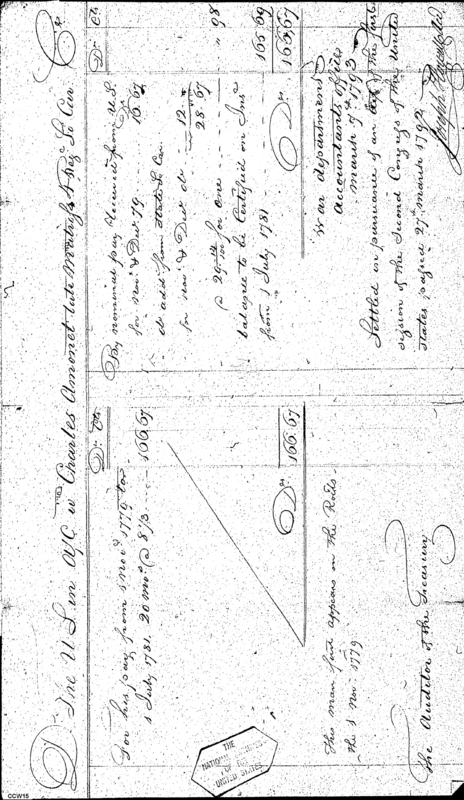 Dr The U S in a/c w Charles Amonet late Matross 4 Regt So Car Cr
Ds Cts
For his pay from 1 Novr 1779 to
1 July 1781. 20 mos @ 8 1/3 166.67
Ds 166.67
This man first appears on the Rolls
the 1 Nov 1779
The Auditor of the Treasury
Ds Cts
By nominal pay received from U.S.
for Novr & Decr 79 16.67
do addl from State So Car
for Novr & Decr do 12
28.67
@ for one " 98
bal agree to be Certified on Int
from 1 July 1781 165 69
Ds 166.67
War department
Accountants office
March 7th 1793
Settled in pursuance of an act of the first
session of the Second Congress of the United
States passed 27th March 1792
Joseph Howell
THE
NATIONAL ARCHIVES
OF THE
UNITED STATES
CCW15